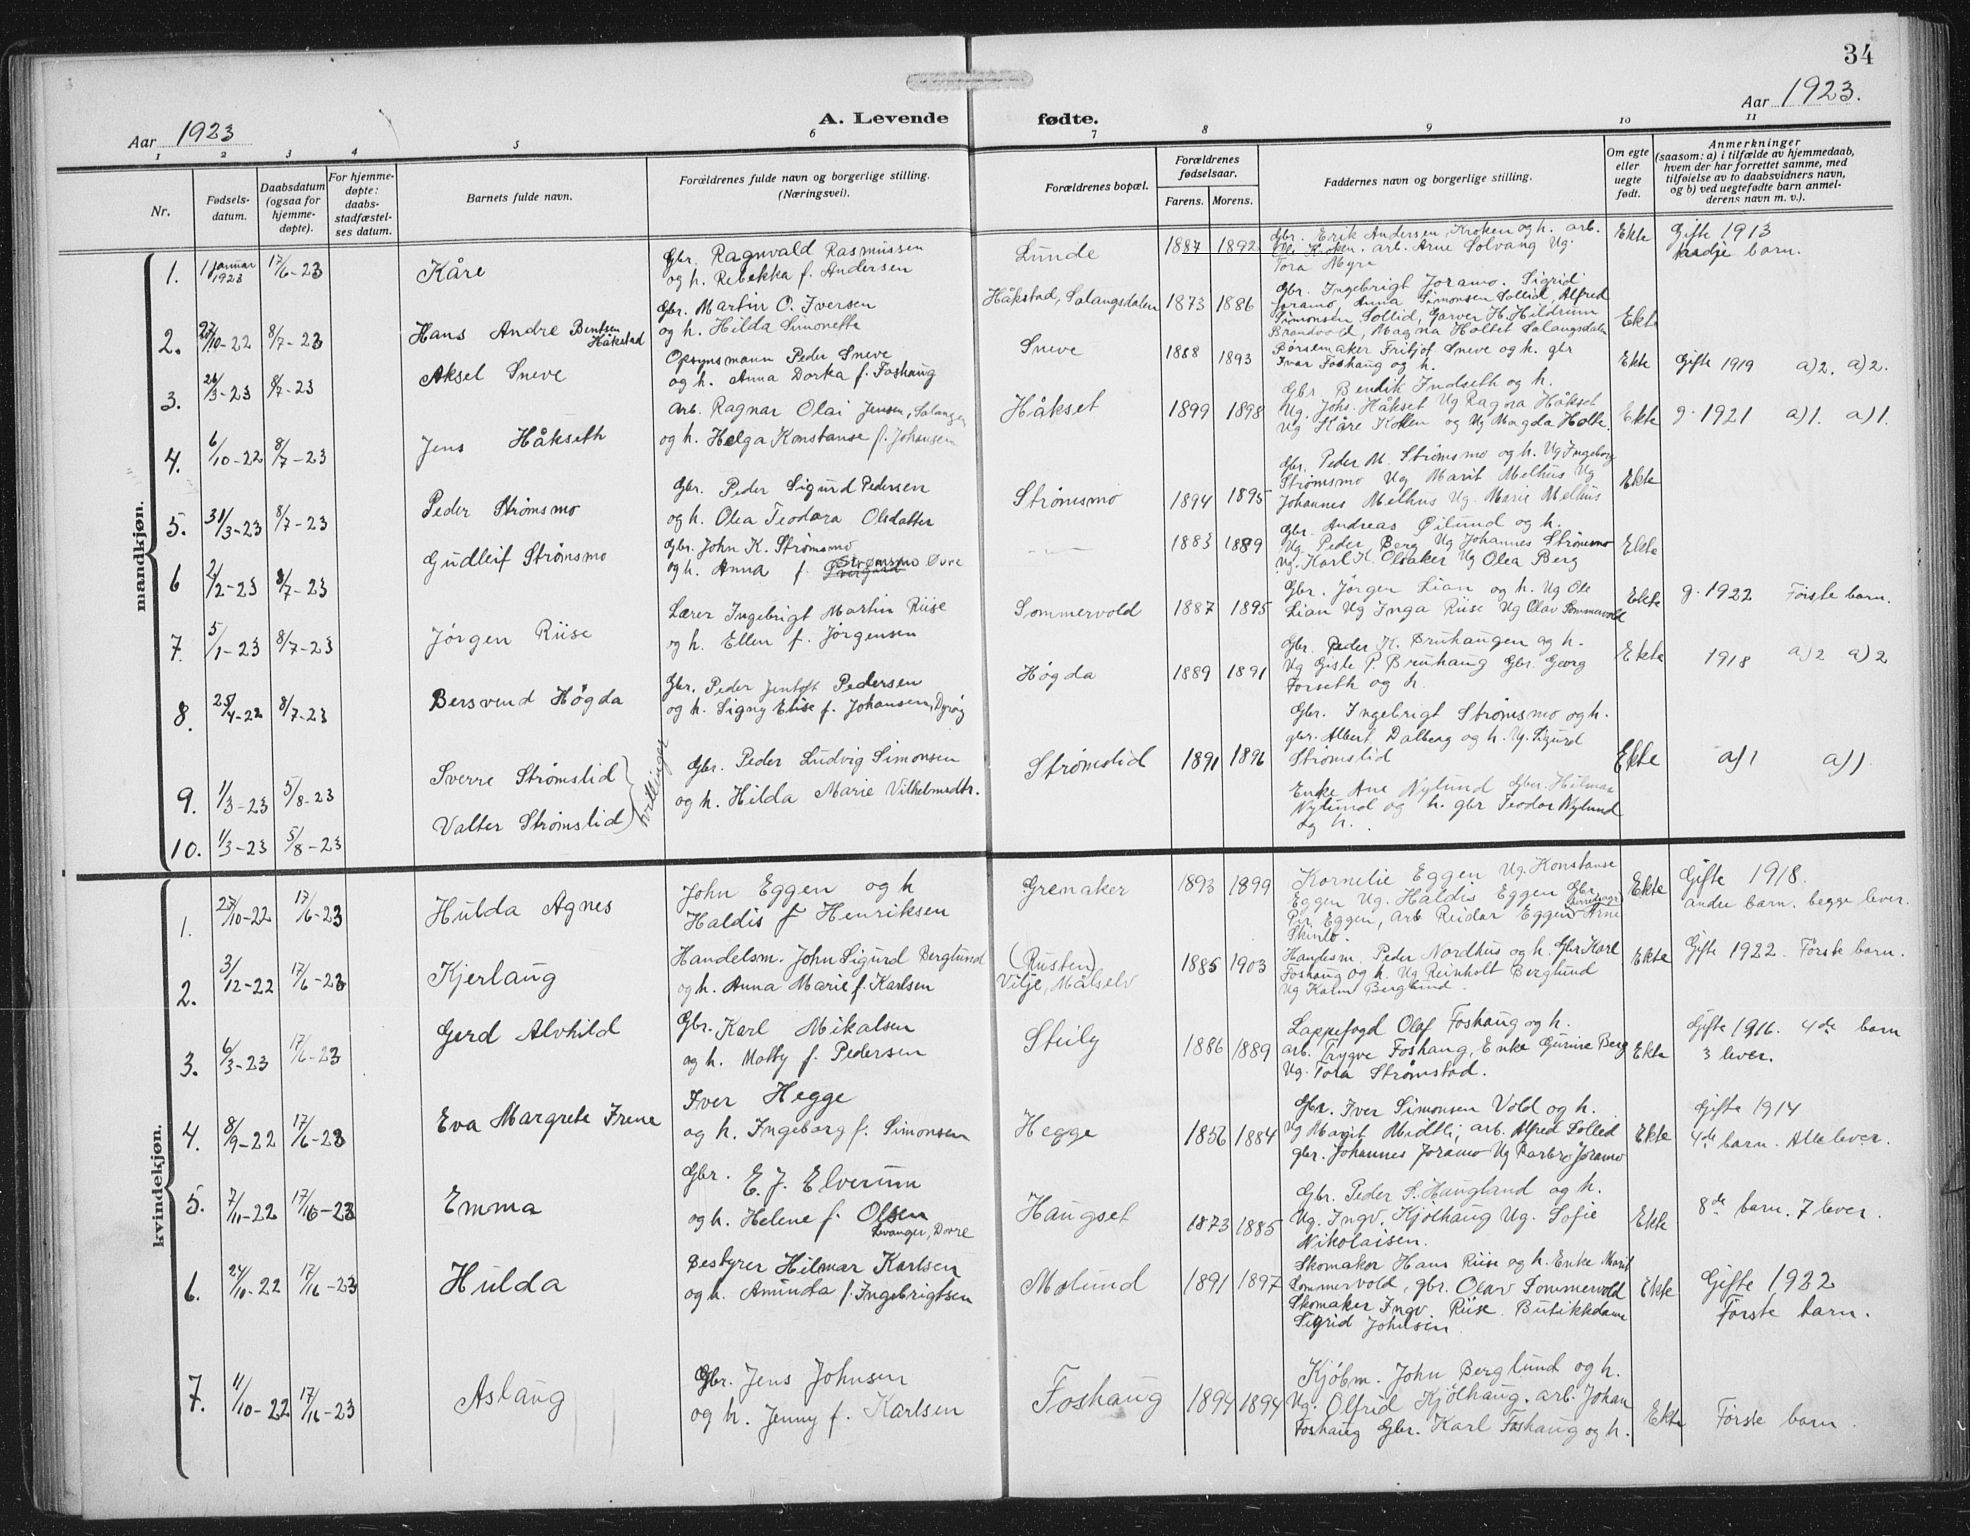 34
Aar 1923
A. Levende fødte.
Aar 1923.
1 2 3 4 5 6 7 8 9 10 11
Nr.
Fødsels-
datum.
Daabsdatum
(ogsaa for
hjemme-
døpte).
For hjemme-
døpte:
daabs-
stadfæstel-
ses datum.
Barnets fulde navn.
Forældrenes fulde navn og borgerlige stilling.
(Næringsvei).
Forældrenes bopæl.
Forældrenes
fødselsaar.
Farens. Morens.
Faddernes navn og borgerlige stilling.
Om egte
eller
uegte
født.
Anmerkninger
(saasom: a) i tilfælde av hjemmedaab,
hvem der har forrettet samme, med
tilføielse av to daabsvidners navn,
og b) ved uegtefødte barn anmel-
derens navn m. v.).
mandkjøn.
1. 1 januar 1923 17/6-23 Kåre
Gbr. Ragnvald Rasmussen
og h. Rebekka f. Andersen
Lunde 1887 1892
Gbr. Erik Andersen, Kroken og h. arb.
Ole Kroken. arb. Arne Solvang Ug.
Tora Myre
Ekte Gifte 1913
barn.
2. 27/10-22 8/7-23 Hans Andre Bentsen
Håkstad
Gbr. Martin O. Iversen
og h. Hilda Simonette
Håkstad, Salangsdalen 1873 1886
Gbr. Ingebrigt Joramo. Sigrid
Joramo, Anna Simonsen Sollid, Alfred
Simonsen Sollid, Garver H. Hildrum
Brandvold, Magna Holtet Salangsdalen
Ekte
3. 26/3-23 8/7-23 Aksel Sneve
Opsynsmann Peder Sneve
og h. Anna Dorka f. Foshaug
Sneve 1888 1893
Børsemaker Fritjof Sneve og h. gbr
Ivar Foshaug og h.
Ekte Gifte 1919 a)2. a)2.
4. 6/10-22 8/7-23 Jens Håkseth
Arb. Ragnar Olai Jensen, Salangen
og h. Helga Konstanse f. Johansen
Håkset 1899 1898
Gbr Bendik Indseth og h.
Ug. Johs. Håkset Ug Ragna Håkset
Ug Kåre Koken og Ug Magda Holte
Ekte g. 1921 a)1. a)1.
5. 31/3-23 8/7-23 Peder Strømsmo
Gbr. Peder Sigurd Pedersen
og h. Olea Teodora Olsdatter
Strømsmo 1894 1895
Gbr. Peder M. Strømsmo og h. Ug Ingeborg
Strømsmo Ug Marit Melhus Ug
Johannes Melhus Ug. Marie Melhus
Ekte
6 2/2-23 8/7-23 Gudleif Strømsmo
Gbr. John K. Strømsmo
og h. Anna f. Strømsmo Øvre
—〃— 1883 1889
Gbr. Andreas Øilund og h.
Ug. Peder Berg Ug Johannes Strømsmo
Ug. Karl K. Olsaker Ug Olea Berg
Ekte
7. 5/1-23 8/7-23 Jørgen Riise
Lærer Ingebrigt Martin Riise
og h. Ellen f. Jørgensen
Sommervold 1887 1895
Gbr. Jørgen Lian og h. Ug Ole
Lian Ug Inga Riise Ug Olav Sommervold
Ekte g. 1922 Første barn.
8. 25/4-22 8/7-23 Bersvend Høgda
Gbr. Peder Jentoft Pedersen
og h. Signy Elise f. Johansen, Dyrøy
Høgda 1889 1891
Gbr. Peder K. Bruhaugen og h.
Ug Giste P. Bruhaug Gbr. Georg
Forseth og h.
Ekte 1918 a)2 a)2
9. 1/3-23 5/8-23 Sverre Strømslid
10. 1/3-23 5/8-23 Valter Strømslid
tvillinger
Gbr. Peder Ludvig Simonsen
og h. Hilda Marie Vilhelmsdtr.
Strømslid 1891 1896
Gbr. Ingebrigt Strømsmo og h.
gbr. Albert Dalberg og h. Ug. Sigurd
Strømslid
Enke Ane Nylund Gbr. Hilmar
Nylund og h. gbr Teodor Nylund
og h.
Ekte a)1 a)1
kvindekjøn.
1. 27/10-22 17/6-23 Hulda Agnes
John Eggen og h
Haldis f Henriksen
Grenaker 1893 1899
Kornelie Eggen Ug. Konstanse
Eggen Ug. Haldis Eggen Gbr
Pir. Eggen, arb Reidar Eggen Arne
Skinlo.
Ekte Gifte 1918.
andre barn. begge lever.
2. 3/12-22 17/6-23 Kjerlaug
Handelsm. John Sigurd Berglund
og h. Anna Marie f. Karlsen
(Rusten)
Vilje, Målselv 1885 1903
Handesm. Peder Nordhus og h. Gbr Karl
Foshaug og h. Ug Reinholt Berglund
Ug Kalm Berglund.
Ekte Gifte 1922. Første barn.
3. 6/3-23 17/6-23 Gerd Alvhild
Gbr. Karl Mikalsen
og h. Matby f. Pedersen
Steily 1886 1889
Lappefogd Olaf Foshaug og h.
arb. Trygve Foshaug, Enke Gurine Berg
Ug. Tora Strømstad.
Ekte Gifte 1916. 4de barn
3 lever.
4. 8/9-22 17/6-23 Eva Margrete Irene
Iver Hegge
og h. Ingeborg f. Simonsen
Hegge 1856 1884
Gbr. Iver Simonsen Vold og h.
Ug Marit Midtli, arb. Alfred Sollid
gbr. Johannes Joramo Ug Barbro Joramo
Ekte Gifte 1914
4de barn. Alle lever.
5. 7/11-22 17/6-23 Emma
Gbr. E. J. Elverum
og h. Helene f. Olsen
Levanger, Dovre
Haugset 1873 1885
Gbr. Peder S. Haugland og h.
Ug. Ingv. Kjølhaug Ug. Sofie
Nikolaisen.
Ekte 8de barn. 7 lever.
6. 24/10-22 17/6-23 Hulda
Bestyrer Hilmar Karlsen
og h. Aminda f. Ingebrigtsen
Molund 1891 1897
Skomaker Hans Riise og h. Enke Marit
Sommervold, gbr. Olav Sommervold
Skomaker Ingv. Riise. Butikkdame
Sigrid Johnsen.
Ekte Gifte 1922
Første barn.
7. 11/10-22 17/6-23 Aslaug
Gbr. Jens Johnsen
og h. Jenny f. Karlsen
Foshaug 1894 1894
Kjøbm. John Berglund og h.
Ug. Olfrid Kjølhaug. arb. Johan
Foshaug Gbr. Karl Foshaug og h.
Ekte Første barn.